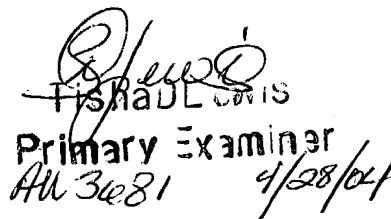 Tisha D. Lewis
Primary Examiner
AU 3681 4/28/04